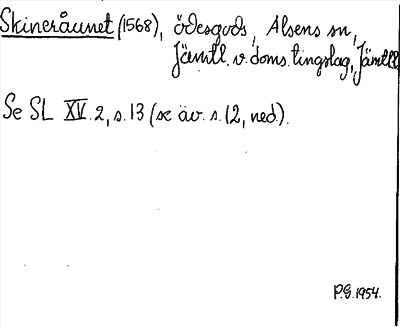 Skineråunet (1568), ödesgods, Alsens sn,
Jämtl. v. doms. tingslag, Jämtl.
Se SL XV. 2, s. 13 (se äv. s. 12, ned.).
P.G. 1954.